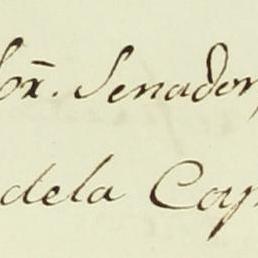 Sor. Senador,
dela Cap